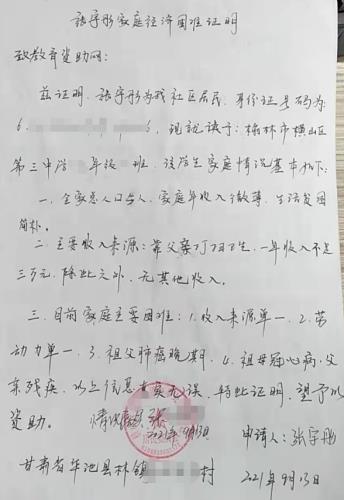 张宇彤家庭经济困难证明
致教育资助网：
兹证明，张宇彤为我社区居民，身份证号码为：
6. 6，现就读于：榆林市横山区
第三中学 年级 班，该学生家庭情况基本如下：
一、全家总人口 人，家庭年收入微薄，生活贫困
简朴。
二、主要收入来源：靠父亲打扫卫生，一年收入不足
三万元，除此之外，无其他收入。
三、目前家庭主要困难：1.收入来源单一，2.劳
动力单一，3.祖父肺癌晚期，4.祖母冠心病，父
亲残疾，以上信息真实无误，特此证明，望予以
资助。 情况属实 张
2021年9月13日 申请人：张宇彤
甘肃省华池县林镇 村 2021年9月13日